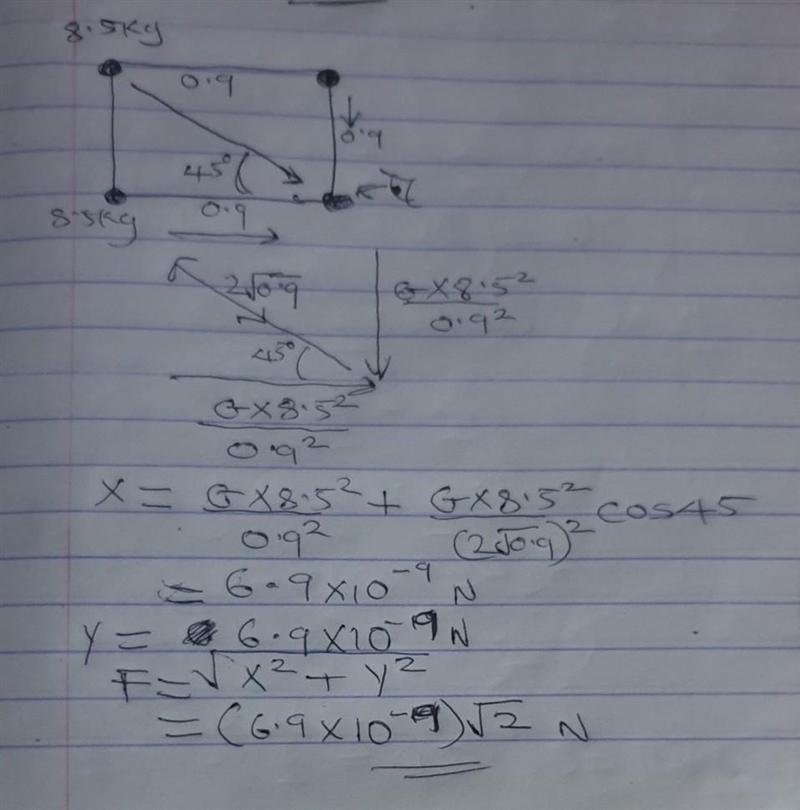 8.5Kg
0.9
0.9
45°
8.5Kg
0.9
2√0.9
G×8.5²
0.9²
45°
G×8.5²
0.9²
X = G×8.5²/0.9² + G×8.5²/(2√0.9)² cos45
= 6.9×10⁻⁹ N
Y = 6.9×10⁻⁹ N
F = √X² + Y²
= (6.9×10⁻⁹)√2 N